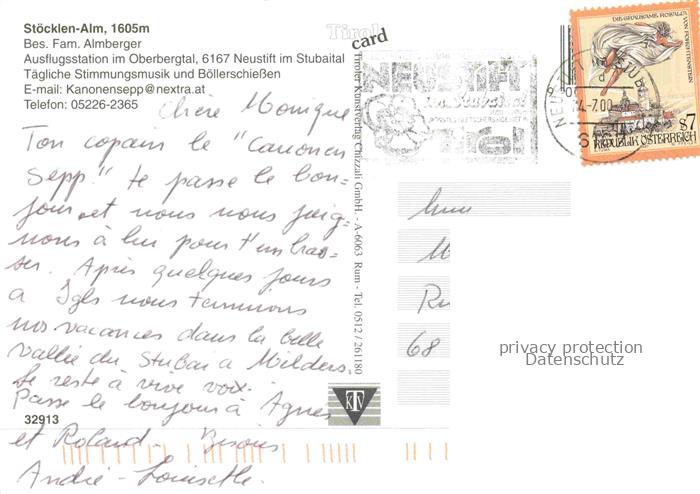 Stöcklen-Alm, 1605m
Bes. Fam. Almberger
Ausflugsstation im Oberbergtal, 6167 Neustift im Stubaital
Tägliche Stimmungsmusik und Böllerschießen
E-mail: Kanonensepp@nextra.at
Telefon: 05226-2365
Chère Monique
Ton copain le "Canonen
Sepp" te passe le bon=
jour et nous nous joig=
nons à lui pour t'embras=
ser. Après quelques jours
a Igls nous terminons
nos vacances dans la belle
vallée du Stubai a Milders.
Le reste à vive voix.
Passe le bonjour à Agnès
et Roland. Bisous
André - Louisette.
32913
Tirol
card
Tiroler Kunstverlag Chizzali GmbH. - A-6063 Rum - Tel. 0512 / 261180
KTV
NEUSTIFT
im Stubaital
Tirol
-7.00
DIE GRAUSAME ROSALIA VON FORCHTENSTEIN
S7
REPUBLIK ÖSTERREICH
M
Ru
68
privacy protection
Datenschutz